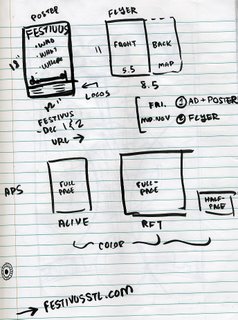 POSTER
FLYER
FESTIVUS
-WHO
-WHAT
-WHERE
18"
12"
LOGOS
11
FRONT
BACK
MAP
5.5
8.5
FESTIVUS
- DEC 1 & 2
URL →
FRI.
① AD + POSTER
MID. NOV
② FLYER
ADS
FULL
PAGE
ALIVE
FULL-
PAGE
RFT
HALF-
PAGE
COLOR
→ FESTIVUSSTL.COM